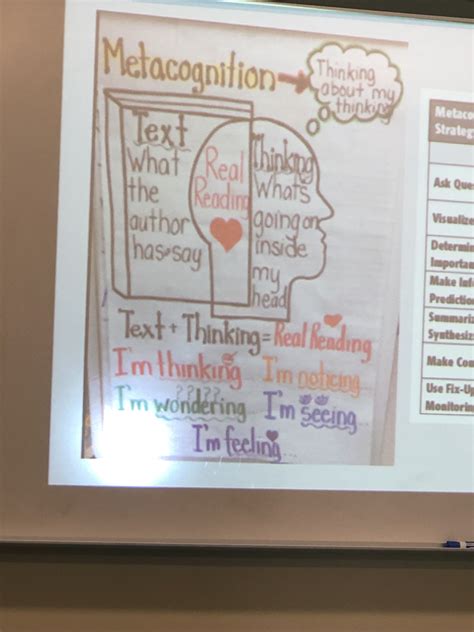 Metacognition
Thinking
about my
thinking
Text
What
the
author
has say
Real
Reading
Thinking
What's
going on
inside
my
head
Text + Thinking = Real Reading
I'm thinking
I'm noticing...
??????
I'm wondering
I'm seeing...
I'm feeling...
Metaco
Strateg
Ask Que
Visualize
Determin
Importan
Make Inf
Prediction
Summariz
Synthesiz
Make Con
Use Fix-Up
Monitorin